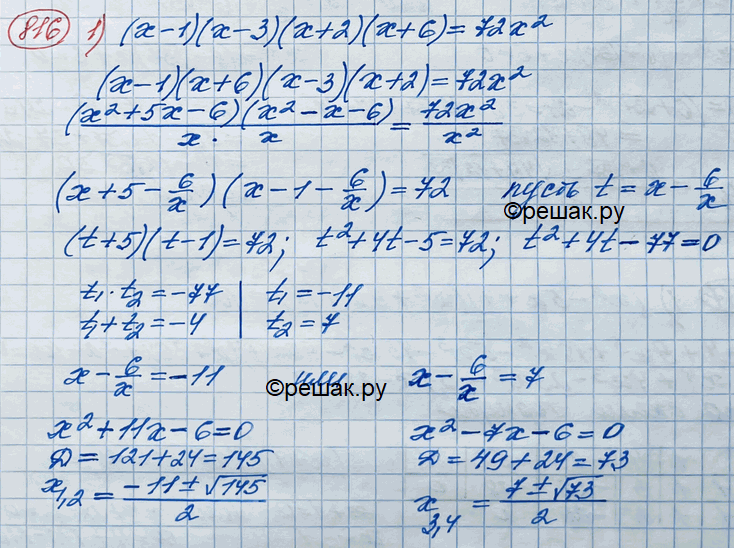 816 1) (x-1)(x-3)(x+2)(x+6)=72x²
(x-1)(x+6)(x-3)(x+2)=72x²
(x²+5x-6)(x²-x-6)/(x·x) = 72x²/x²
(x+5-6/x)(x-1-6/x)=72 пусть t=x-6/x
©решак.ру
(t+5)(t-1)=72; t²+4t-5=72; t²+4t-77=0
t₁·t₂=-77 | t₁=-11
t₁+t₂=-4 | t₂=7
x-6/x=-11 или x-6/x=7
©решак.ру
x²+11x-6=0 x²-7x-6=0
Д=121+24=145 Д=49+24=73
x₁,₂=(-11±√145)/2 x₃,₄=(7±√73)/2